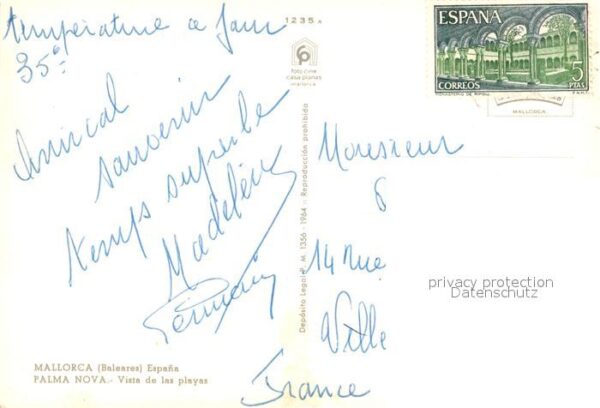 température a Jour
35°
Amical
souvenir
temps superbe
Madeleine
Germain
1235
foto-cine
casa planas
mallorca
Depósito Legal B. M 1356 - 1964 - Reproducción prohibida
ESPAÑA
CORREOS
5
PTAS
MALLORCA
Monsieur
6
14 Rue
Ville
France
privacy protection
Datenschutz
MALLORCA (Baleares) España
PALMA NOVA.- Vista de las playas